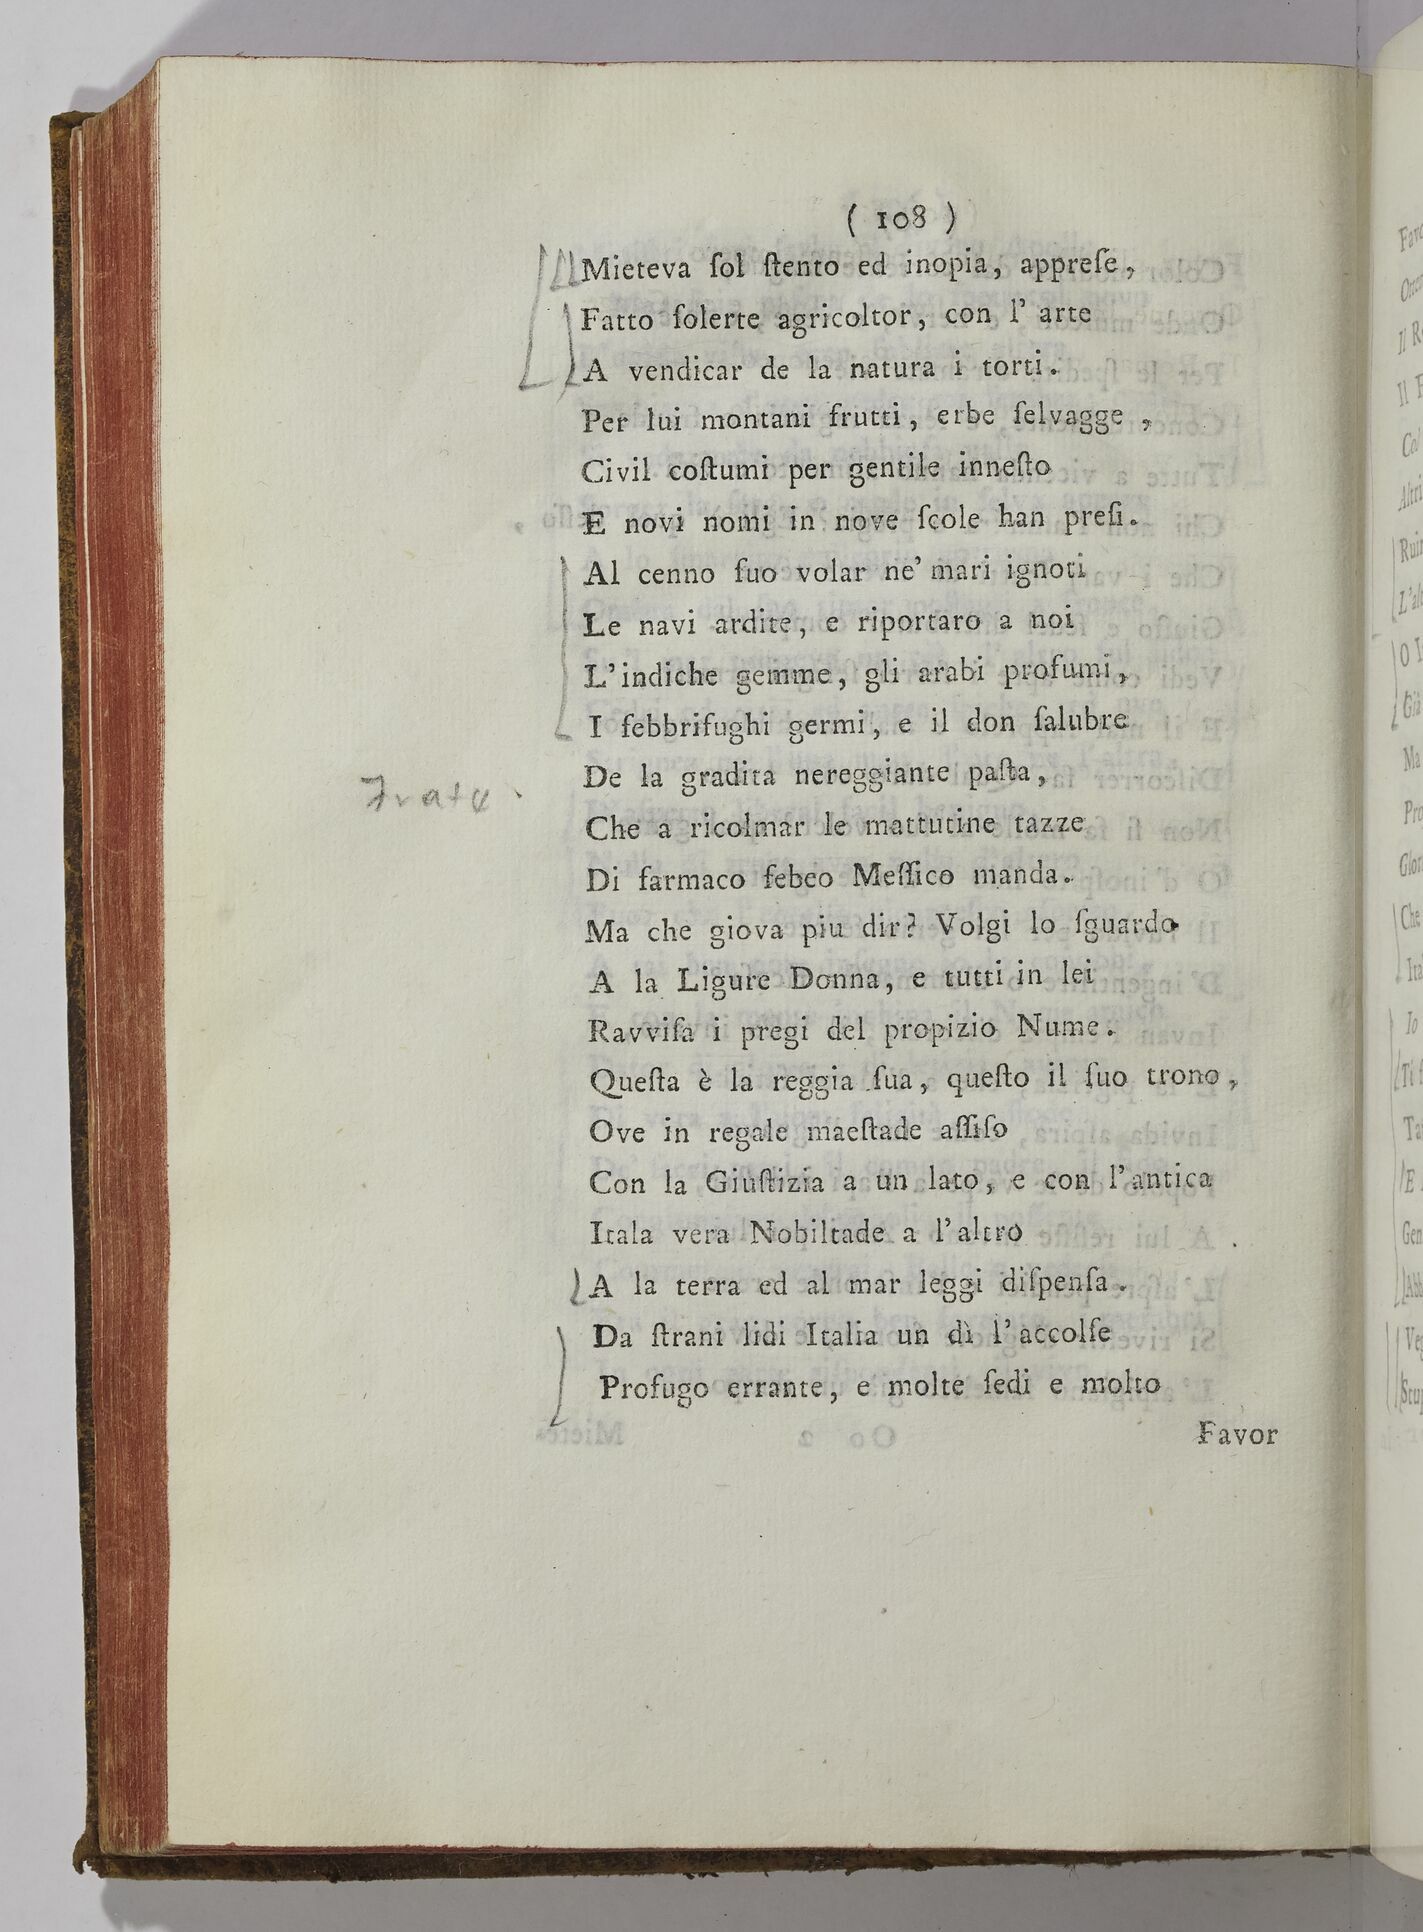 ( 108 )
Mieteva ſol ſtento ed inopia, appreſe,
Fatto ſolerte agricoltor, con l' arte
A vendicar de la natura i torti.
Per lui montani frutti, erbe ſelvagge,
Civil coſtumi per gentile inneſto
E novi nomi in nove ſcole han preſi.
Al cenno ſuo volar ne' mari ignoti
Le navi ardite, e riportaro a noi
L'indiche gemme, gli arabi profumi,
I febbrifughi germi, e il don ſalubre
De la gradita nereggiante paſta,
Che a ricolmar le mattutine tazze
Di farmaco febeo Meſſico manda.
Ma che giova piu dir? Volgi lo ſguardo
A la Ligure Donna, e tutti in lei
Ravviſa i pregi del propizio Nume.
Queſta è la reggia ſua, queſto il ſuo trono,
Ove in regale maeſtade aſſiſo
Con la Giuſtizia a un lato, e con l'antica
Itala vera Nobiltade a l'altro
A la terra ed al mar leggi diſpenſa.
Da ſtrani lidi Italia un dì l'accolſe
Profugo errante, e molte ſedi e molto
Favor